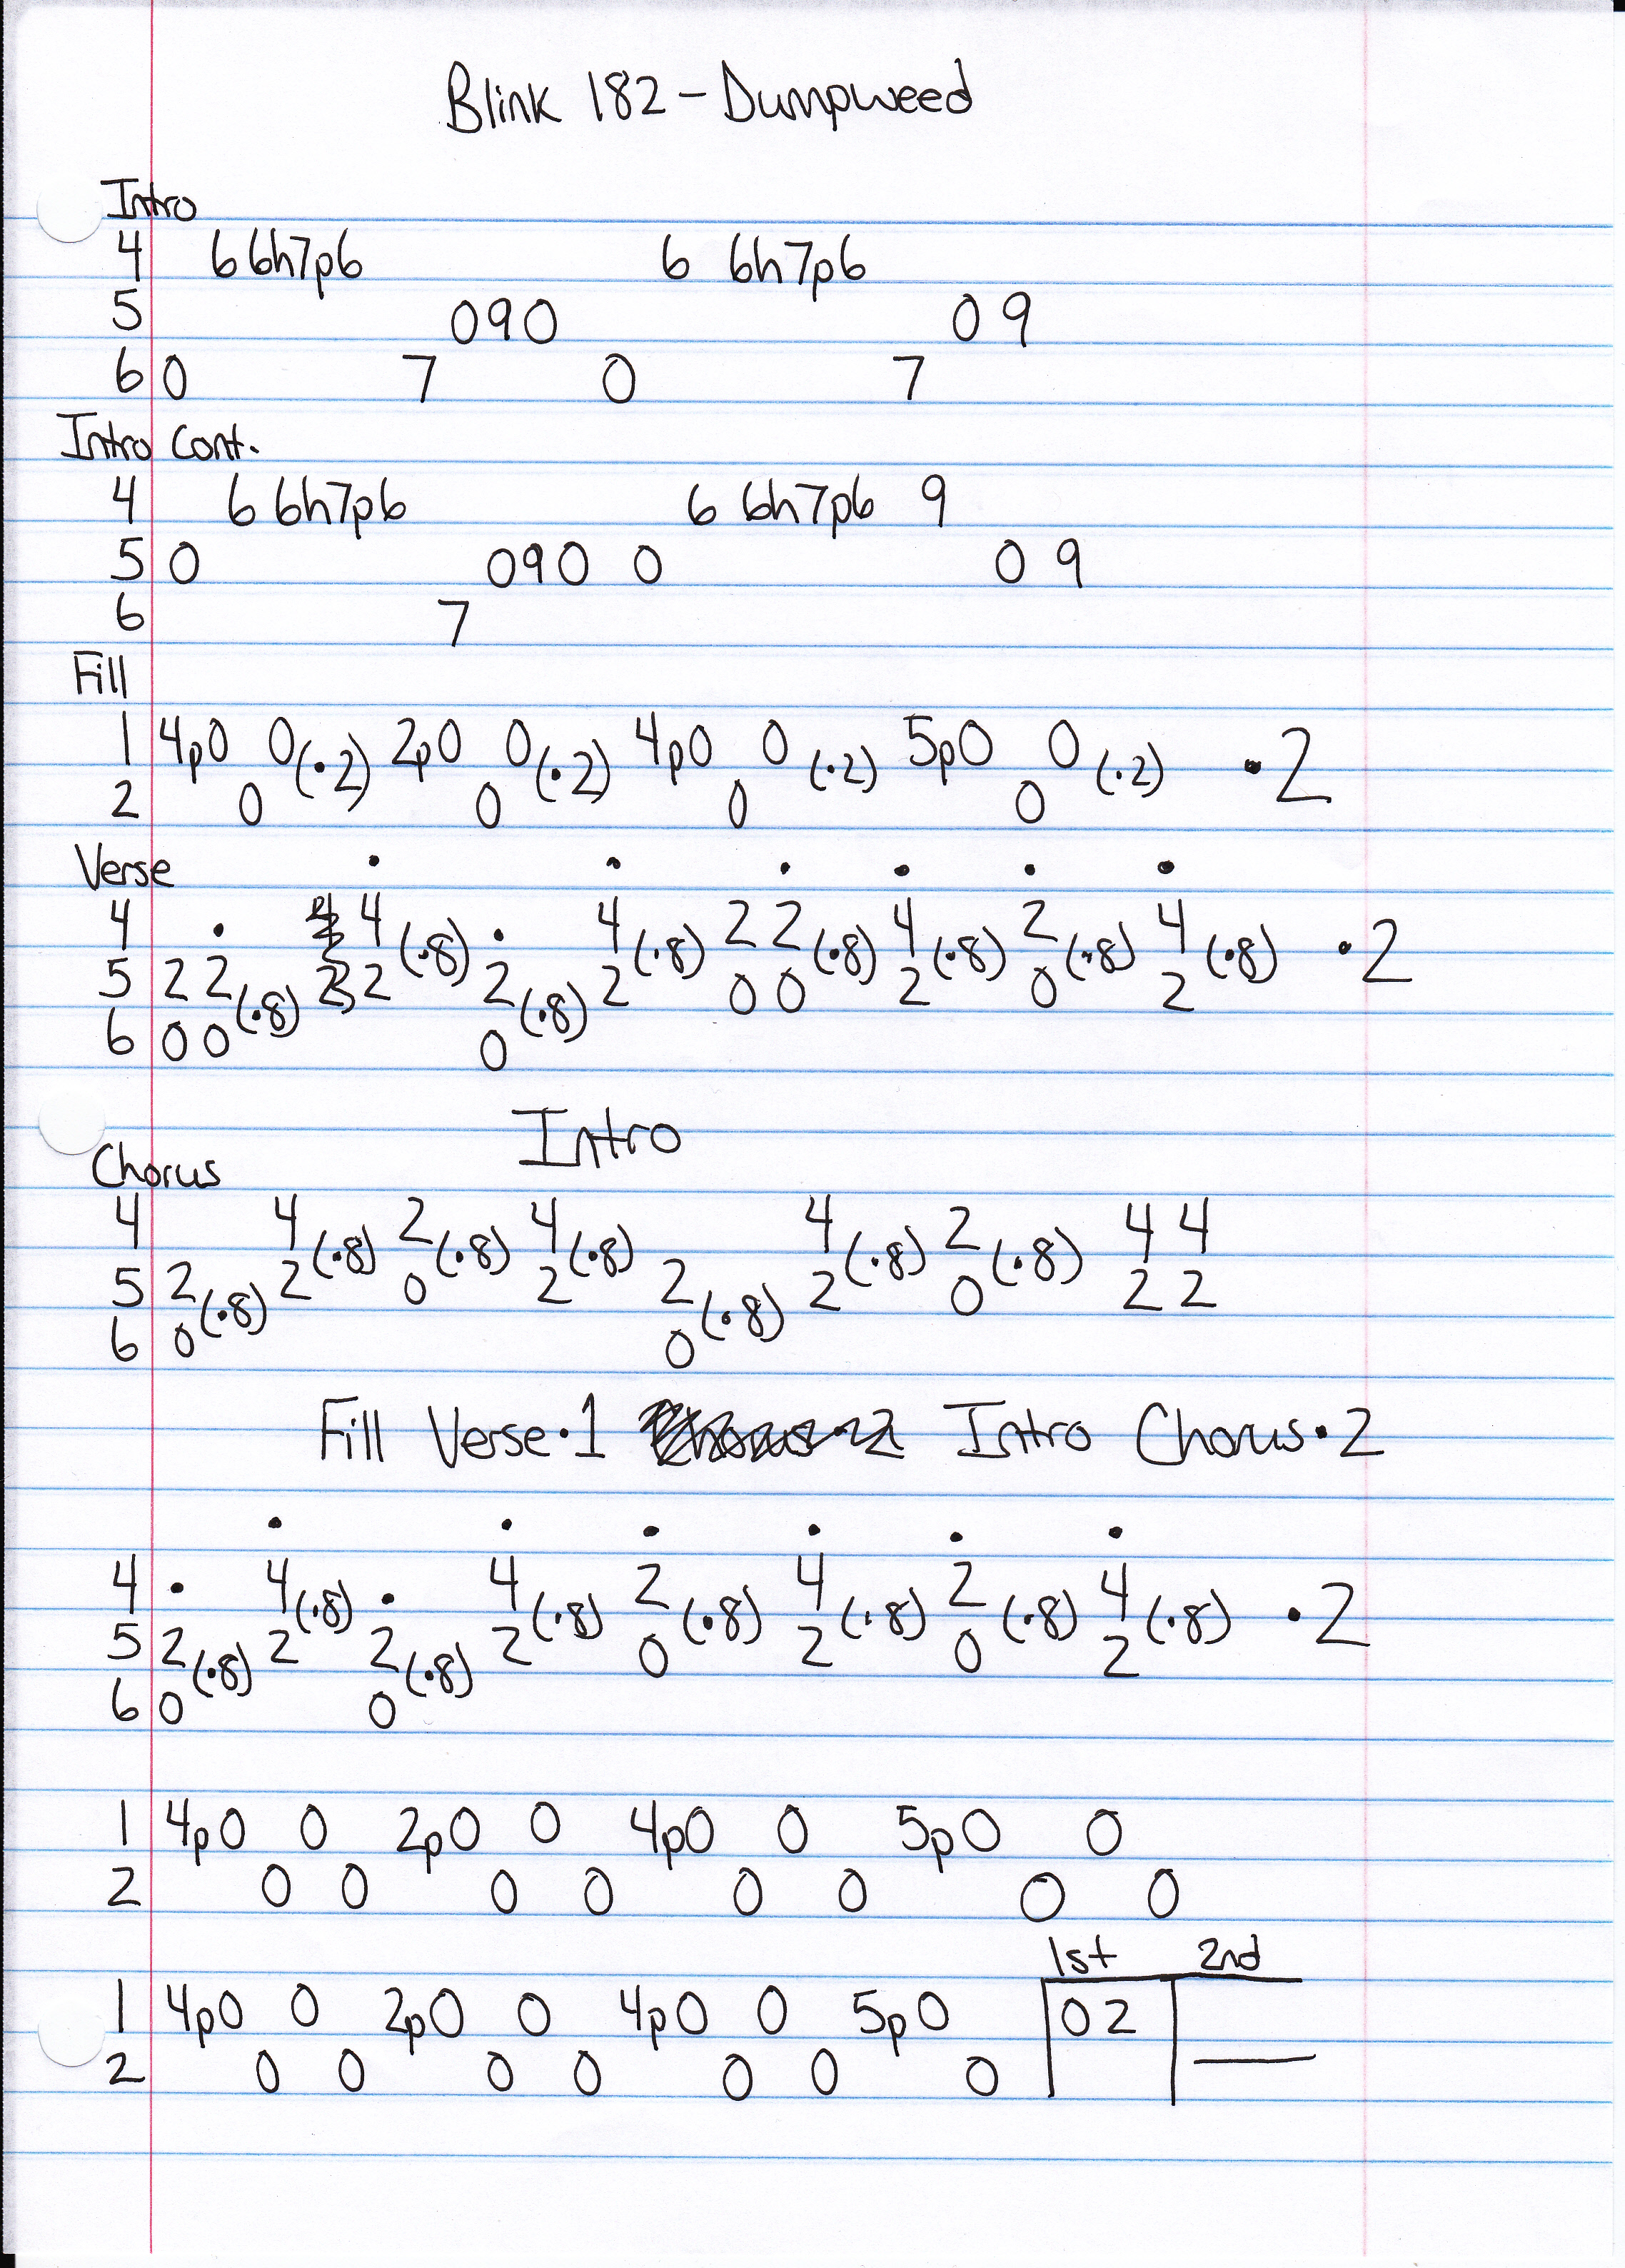 Blink 182 - Dumpweed
Intro
4 6 6h7p6 6 6h7p6
5 090 0 9
6 0 7 0 7
Intro Cont.
4 6 6h7p6 6 6h7p6 9
5 0 090 0 0 9
6 7
Fill
1 4p0 0 (·2) 2p0 0 (·2) 4p0 0 (·2) 5p0 0 (·2) ·2
2 0 0 0 0
Verse
4 4 (·8) 4 (·8) 2 2 (·8) 4 (·8) 2 (·8) 4 (·8) ·2
5 2 2 (·8) 2 2 (·8) 2 0 0 2 0 2
6 0 0 0
Intro
Chorus
4 4 (·8) 2 (·8) 4 (·8) 4 (·8) 2 (·8) 4 4
5 2 (·8) 2 0 2 2 (·8) 2 0 2 2
6 0 0
Fill Verse·1 Intro Chorus·2
4 4 (·8) 4 (·8) 2 (·8) 4 (·8) 2 (·8) 4 (·8) ·2
5 2 (·8) 2 2 (·8) 2 0 2 0 2
6 0 0
1 4p0 0 2p0 0 4p0 0 5p0 0
2 0 0 0 0 0 0 0 0
1st 2nd
1 4p0 0 2p0 0 4p0 0 5p0 0 2
2 0 0 0 0 0 0 0